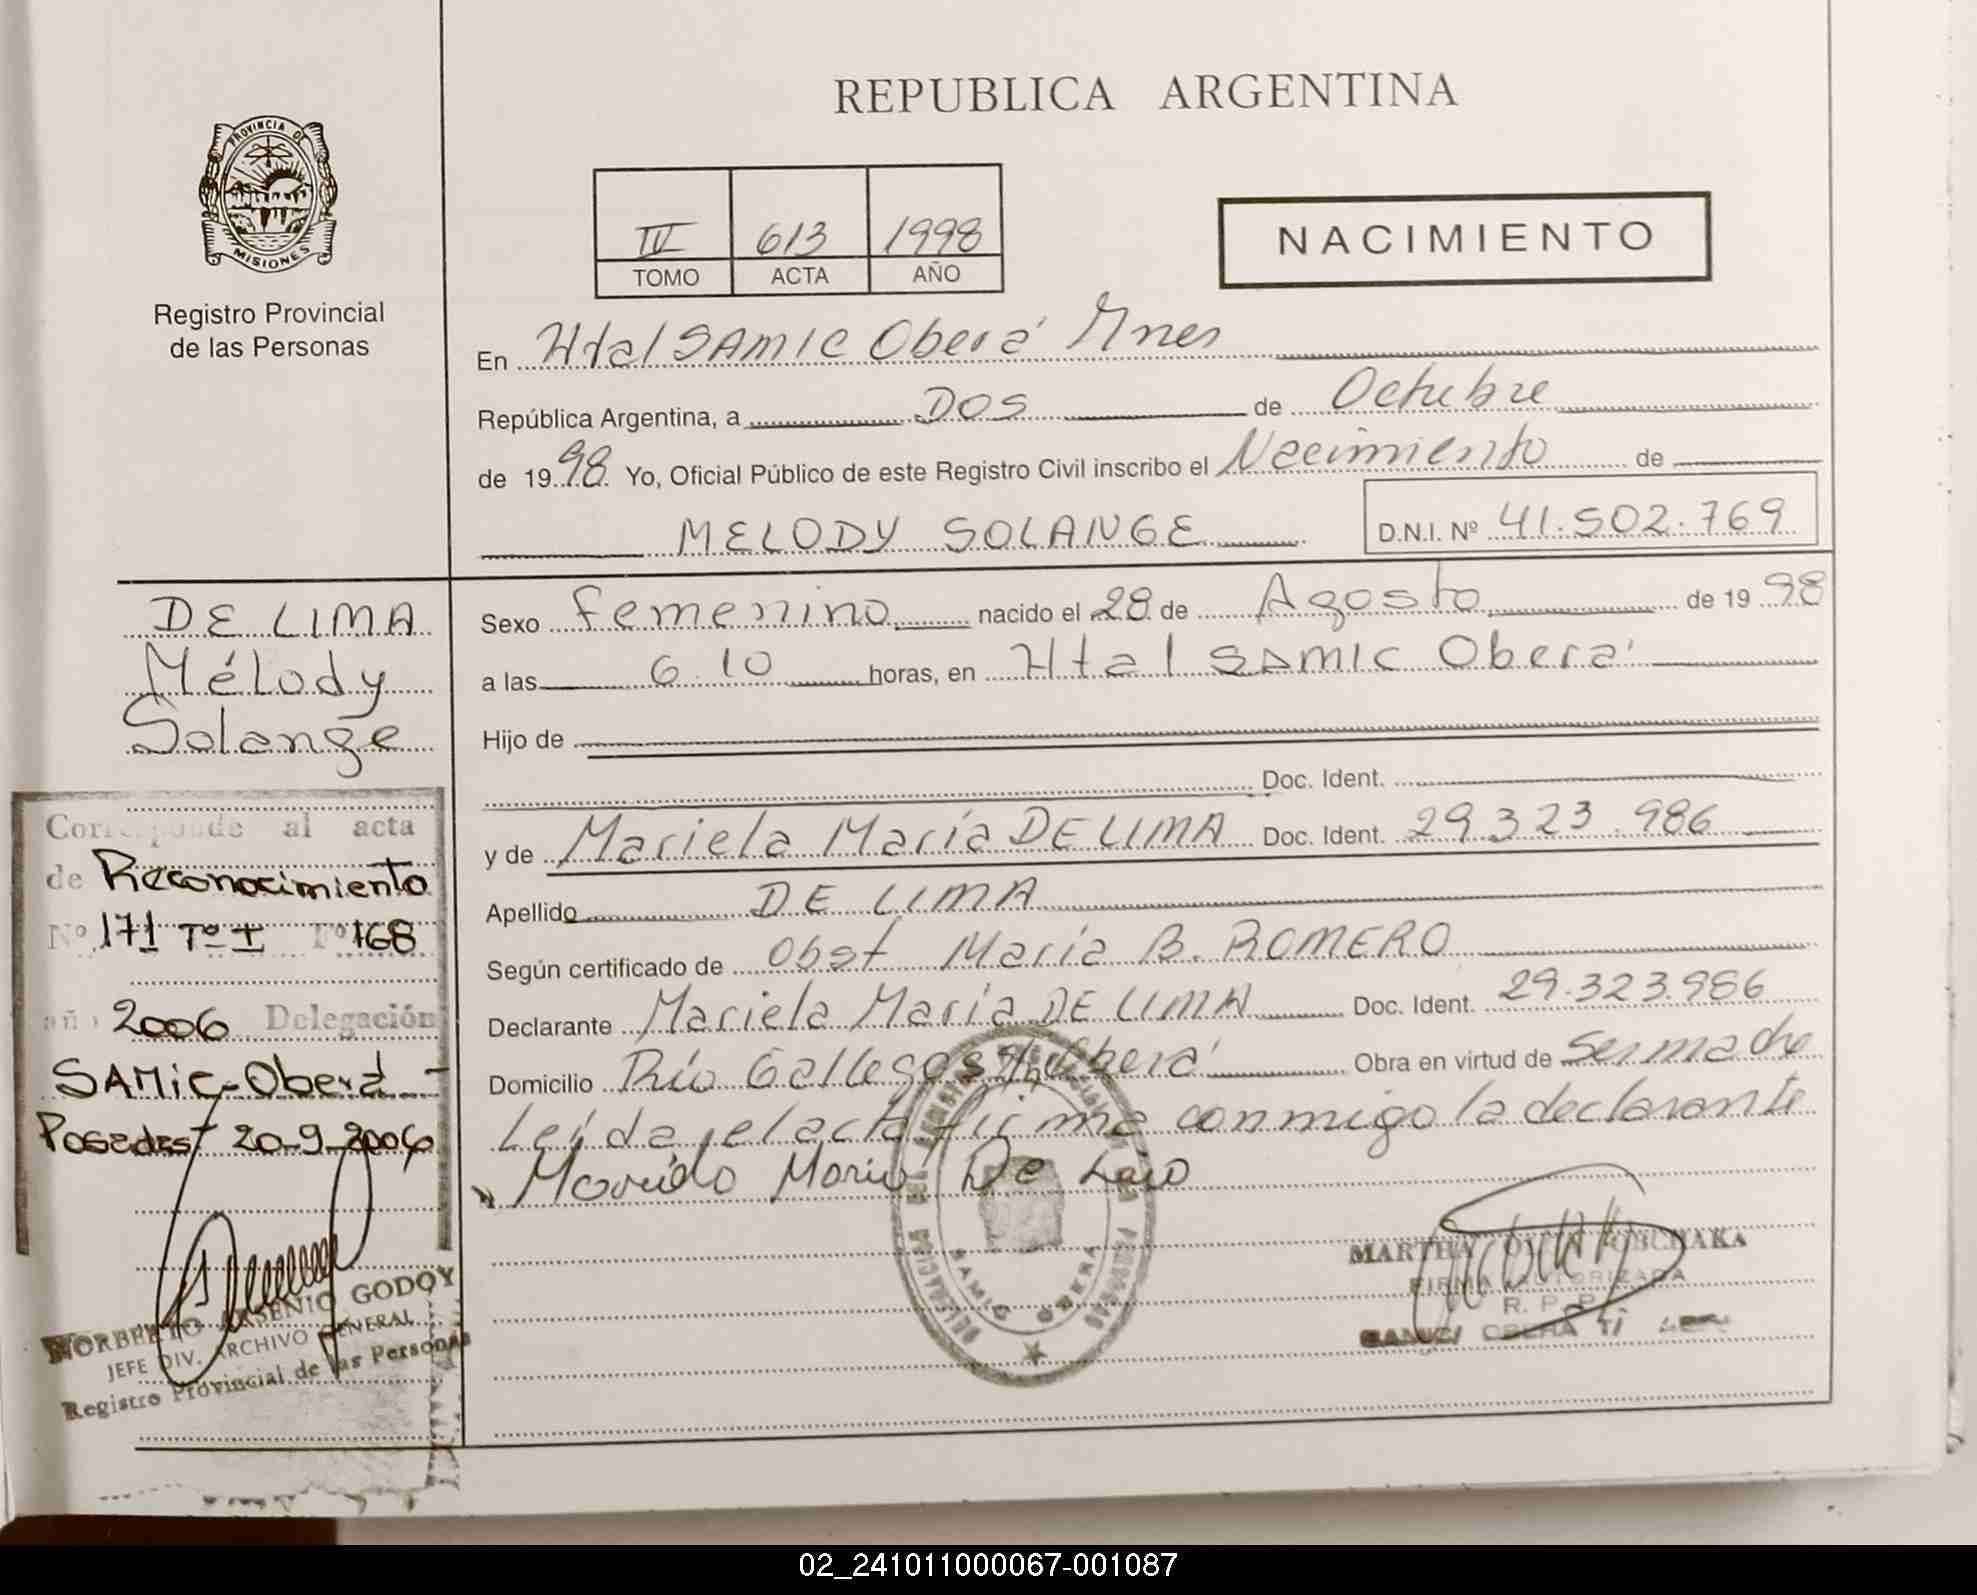 REPUBLICA ARGENTINA
PROVINCIA DE
MISIONES
Registro Provincial
de las Personas
IV 613 1998
TOMO ACTA AÑO
NACIMIENTO
En Htal SAMIC Oberá Mnes
República Argentina, a DOS de Octubre
de 1998 Yo, Oficial Público de este Registro Civil inscribo el Nacimiento de
MELODY SOLANGE D.N.I. Nº 41.502.769
DE LIMA
Mélody
Solange
Sexo femenino nacido el 28 de Agosto de 1998
a las 6.10 horas, en Htal SAMIC Oberá
Hijo de
Doc. Ident.
y de Mariela María DE LIMA Doc. Ident. 29.323.986
Apellido DE LIMA
Según certificado de Obst María B. ROMERO
Declarante Mariela María DE LIMA Doc. Ident. 29.323.986
Domicilio Río Gallegos Oberá Obra en virtud de ser madre
Leída el acta firma conmigo la declarante
Corresponde al acta
de Reconocimiento
Nº 171 Tº I Fº 168
año 2006 Delegación
SAMIC-Oberá-
Posadas 20-9-2006
NORBERTO ARSENIO GODOY
JEFE DIV. ARCHIVO GENERAL
Registro Provincial de las Personas
SAMIC OBERA
MARTHA
FIRMA AUTORIZADA
R. P. P.
SAMIC/ OBERA
02_241011000067-001087